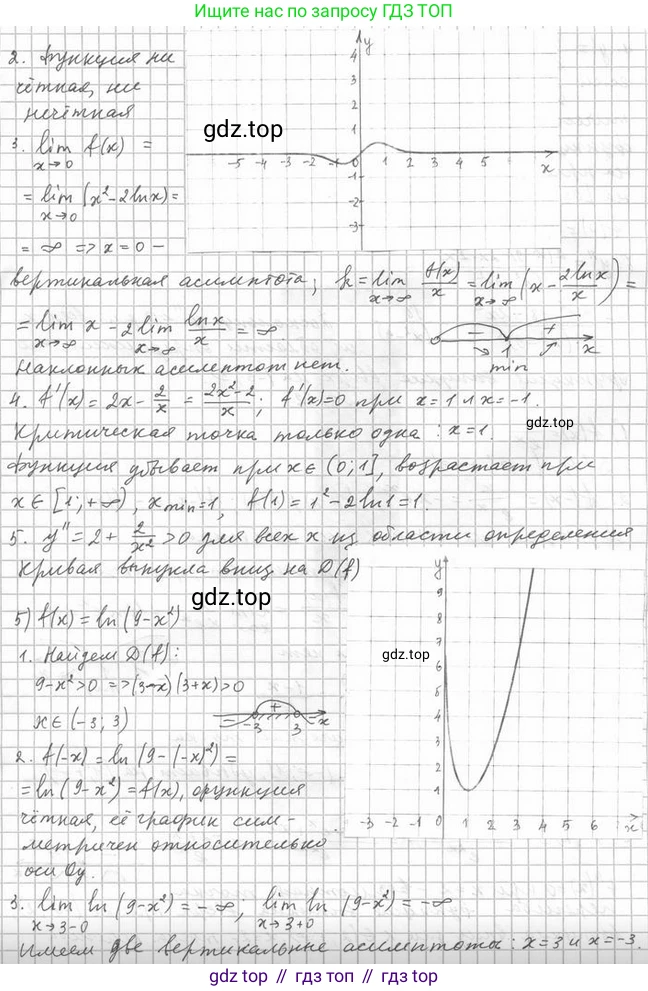 Ищите нас по запросу ГДЗ ТОП
2. Функция ни
чётная, ни
нечётная
3. lim f(x) =
x→0
= lim (x²-2lnx) =
x→0
= ∞ => x = 0 -
y
4
3
2
1
-5 -4 -3 -2 -1 0 1 2 3 4 5 x
-1
-2
-3
gdz.top
вертикальная асимптота; k = lim f(x)/x = lim (x - 2lnx/x) =
x→∞ x→∞
= lim x - 2 lim lnx/x = ∞
x→∞ x→∞
- + 1 min x
Наклонных асимптот нет.
4. f'(x) = 2x - 2/x = (2x²-2)/x; f'(x)=0 при x=1 и x=-1.
Критическая точка только одна: x=1.
Функция убывает при x∈(0;1], возрастает при
x∈[1;+∞), xmin=1, f(1)=1²-2ln1=1.
5. y''=2+2/x²>0 для всех x из области определения
Кривая выпукла вниз на D(f)
gdz.top
5) f(x)=ln(9-x²)
1. Найдем D(f):
9-x²>0 =>(3-x)(3+x)>0
x∈(-3;3)
- + - -3 3 x
2. f(-x)=ln(9-(-x)²)=
=ln(9-x²)=f(x), функция
чётная, её график сим-
метричен относительно
оси Oy.
y
9
8
7
6
5
4
3
2
1
-3 -2 -1 0 1 2 3 4 5 6 x
gdz.top
3. lim ln(9-x²)=-∞; lim ln(9-x²)=-∞
x→3-0 x→3+0
Имеем две вертикальные асимптоты: x=3 и x=-3.
gdz.top // гдз.топ // гдз топ